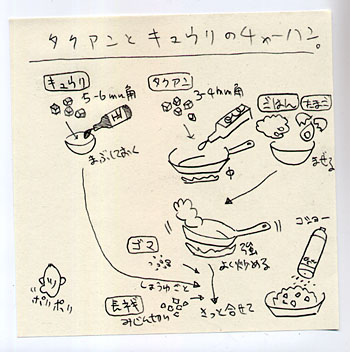 タクアンとキュウリのチャーハン。
キュウリ
5-6mm角
まぶしておく
タクアン
3-4mm角
中
ごはん
たまご
まぜる
ゴマ
強
よく炒める
しょうゆごと
長ネギ
みじん切り
さっと合せて
コショー
ポリポリ